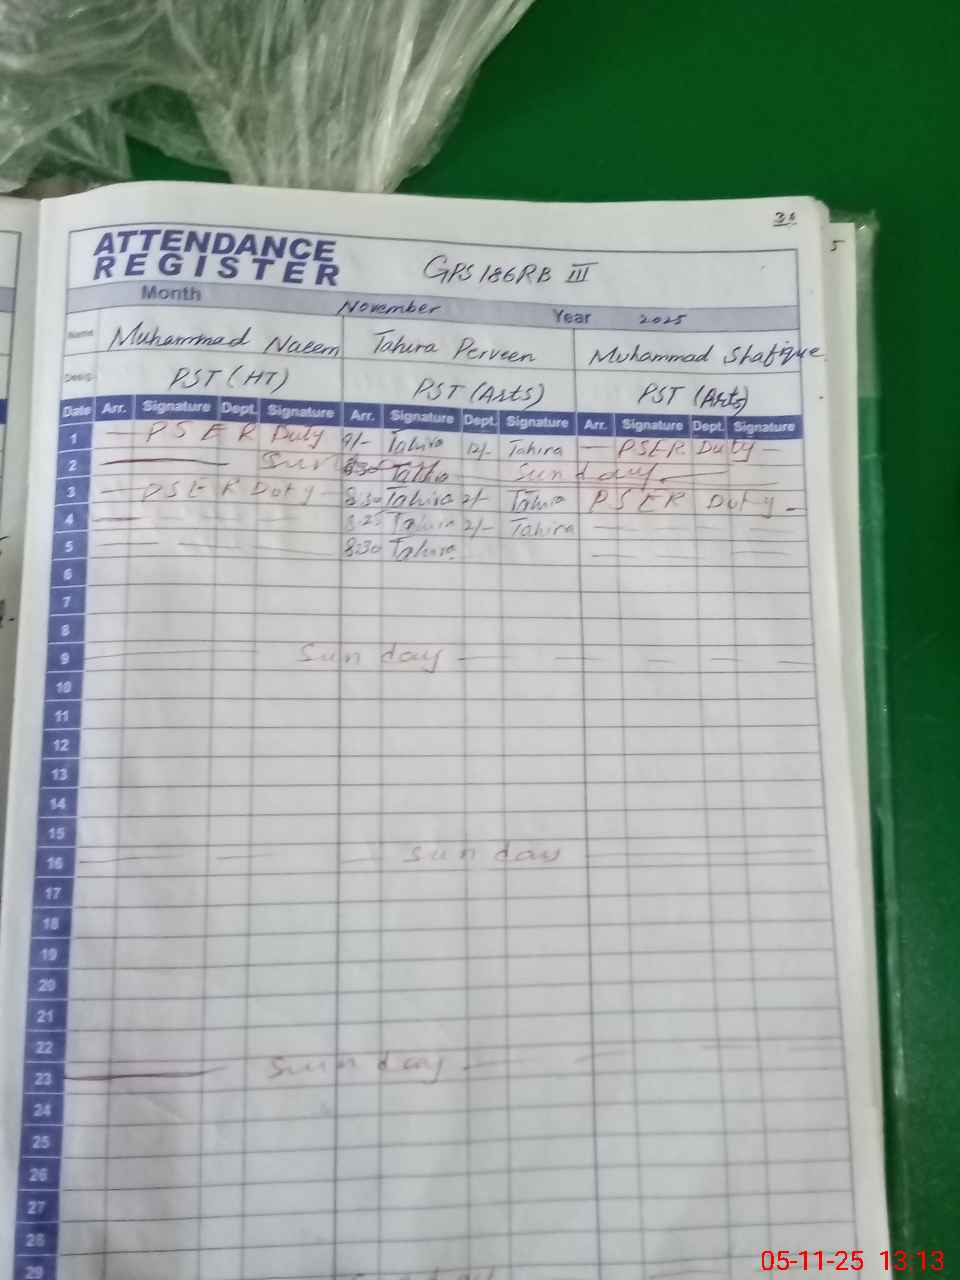 31
5
ATTENDANCE
REGISTER
GPS 186RB III
Month November Year 2025
Name Muhammad Naeem Tahira Perveen Muhammad Shafique
Desig. PST (HT) PST (Arts) PST (Arts)
Date Arr. Signature Dept. Signature Arr. Signature Dept. Signature Arr. Signature Dept. Signature
1 — PSER Duty 9/- Tahira 12/- Tahira — PSER Duty —
2 Sunday.
3 — PSER Duty — 8:30 Tahira 2/- Tahira PSER Duty -
4 8:25 Tahira 2/- Tahira
5 8:30 Tahira
6
7
8
9 Sunday
10
11
12
13
14
15
16 Sunday
17
18
19
20
21
22
23 Sunday
24
25
26
27
28
29
05-11-25 13:13